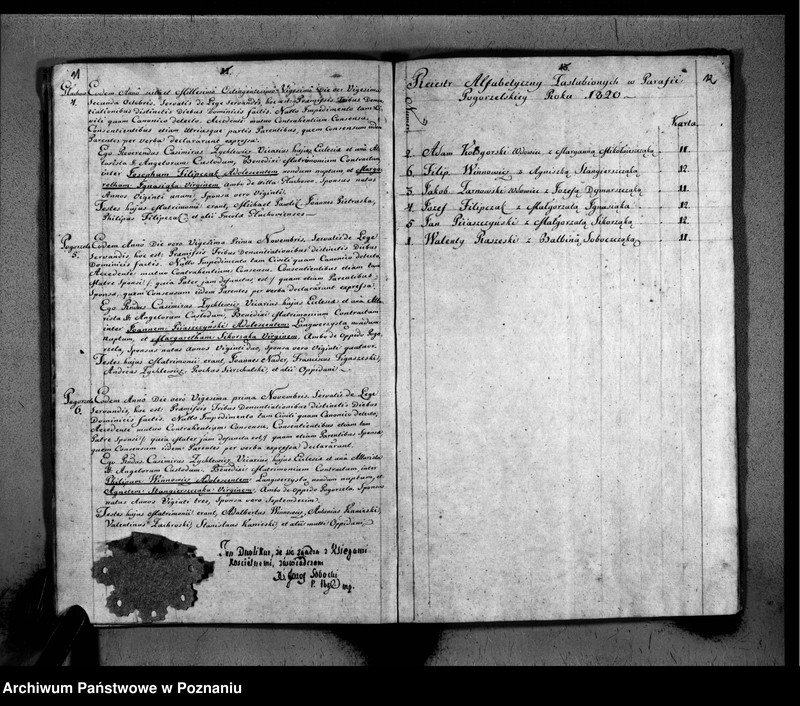 11
Głuchow
4.
Eodem Anno scilicet Millesimo Octingentesimo Vigesimo Die vero Vigesima
Secunda Octobris. Servatis de Lege Servandis, hoc est: Praemissis Tribus Denu
ntiationibus distinctis Diebus Dominicis factis. Nullo Impedimento tam Ci
vili quam Canonico detecto. Accedente mutuo Contrahentium Consensu.
Consentientibus etiam Utriusque partis Parentibus, quem Consensum iidem
Parentes per verba declararunt expressa.
Ego Reverendus Casimirus Zychlewicz Vicarius hujus Ecclesiae et una Al
tarista SS. Angelorum Custodum, Benedixi Matrimonium Contractum
inter Josephum Filipczak Adolescentem nondum nuptum et Marga
retham Ignasiaka Virginem Ambo de Villa Głuchowo. Sponsus natus
Annos Viginti unum, Sponsa vero Viginti.
Testes hujus Matrimonii erant, Michael Pawlik, Joannes Pietraszka,
Philipus Filipczak et alii Incolae Głuchoviensis.
Pogorzela
5.
Eodem Anno Die vero Vigesima Prima Novembris. Servatis de Lege
Servandis, hoc est: Praemissis Tribus Denuntiationibus distinctis Diebus
Dominicis factis. Nullo Impedimento tam Civili quam Canonico detecto.
Accedente mutuo Contrahentium Consensu. Consentientibus etiam tam
Matre Sponsi /: quia Pater jam defunctus est :/ quam etiam Parentibus
Sponsae, quem Consensum iidem Parentes per verba declararunt expressa.
Ego Rndus Casimirus Zychlewicz Vicarius hujus Ecclesiae et una Alta
rista SS. Angelorum Custodum, Benedixi Matrimonium Contractum
inter Joannem Piiaszczyński Adolescentem Langwerzysta nondum
nuptum, et Margaretham Sikorzaka Virginem. Ambo de Oppido Pogo
rzela, Sponsus natus Annos Viginti duo, Sponsa vero Viginti quatuor.
Testes hujus Matrimonii erant, Joannes Nader, Franciscus
Andreas Zychlewicz, Rochus et alii Oppidani.
Pogorzela
6.
Eodem Anno Die vero Vigesima prima Novembris. Servatis de Lege
Servandis, hoc est: Praemissis Tribus Denuntiationibus distinctis Diebus
Dominicis factis. Nullo Impedimento tam Civili quam Canonico detecto.
Accedente mutuo Contrahentium Consensu. Consentientibus etiam tam
Patre Sponsi /: quia Mater jam defuncta est :/ quam etiam Parentibus Sponsae,
quem Consensum iidem Parentes per verba expressa declararunt.
Ego Rndus Casimirus Zychlewicz Vicarius hujus Ecclesiae et una Altarista
SS. Angelorum Custodum. Benedixi Matrimonium Contractum, inter
Philipum Winnowicz Adolescentem Langwerzysta nondum nuptum, et
Agnetem Stangierszczaka Virginem. Ambo de Oppido Pogorzela. Sponsus
natus Annos Viginti tres, Sponsa vero Septendecim.
Testes hujus Matrimonii erant, Adalbertus Winnowicz, Antonius Kasierski,
Valentinus Zachroski, Stanislaus Kasierski, et alii multi Oppidani.
Ten Duplikat, że się zgadza z Księgami
Kościelnemi, zaświadczam
Xi Jozef Sobocki
12
Reiestr Alfabetyczny Zaślubionych w Parafii
Pogorzelskiey Roku 1820
Numer
Karta
2. Adam Kobzgorski Wdowiec z Maryanną Mikołaieszczaką 11.
6. Filip Winnowicz z Agniszką Stangierszczaką 12.
3. Jakob Tarnowski Wdowiec z Jozefą Dymarszczaką 11.
4. Jozef Filipczak z Małgorzatą Ignasiaka 12.
5. Jan Piiaszczyński z Małgorzatą Sikorząką 12.
1. Walenty Raszeski z Balbiną Soboczczaką 11.
Archiwum Państwowe w Poznaniu